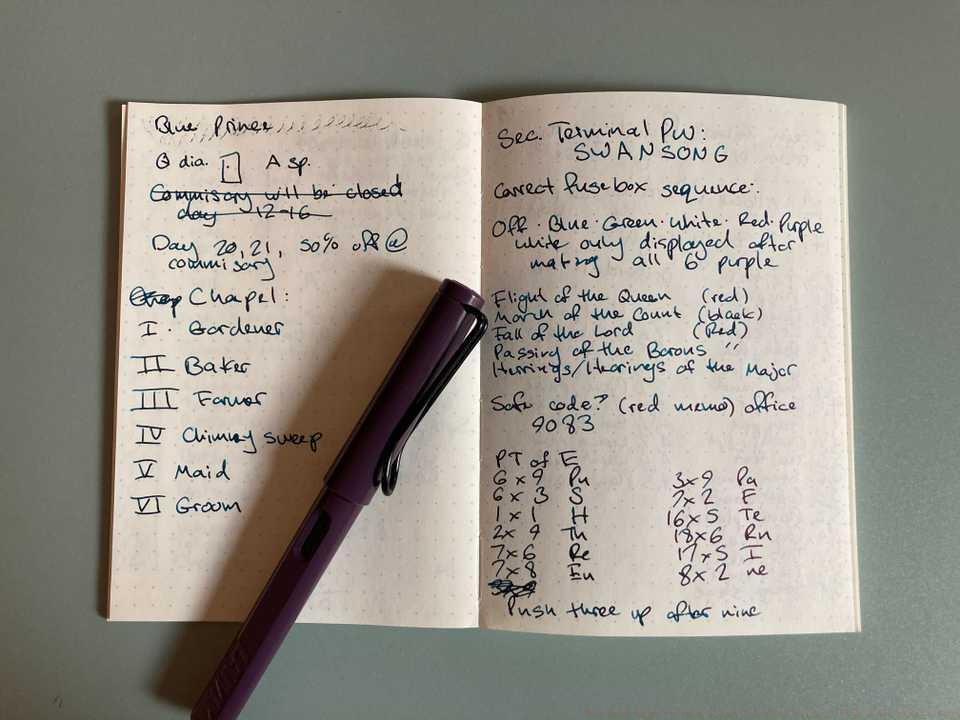 Blue Prince
Q dia. A sp.
Commisary will be closed
day 12-16
Day 20, 21, 50% off @
commisary
Chapel:
I. Gardener
II Baker
III Farmer
IV Chimney sweep
V Maid
VI Groom
Sec. Terminal PW:
SWANSONG
Correct fusebox sequence:
Off · Blue · Green · White · Red · Purple
white only displayed after
making all 6 purple
Flight of the Queen (red)
March of the Count (black)
Fall of the Lord (Red)
Passing of the Barons "
Herrings/Hearings of the Major
Safe code? (red memo) office
9083
PT of E
6 x 9 Pu
6 x 3 S
1 x 1 H
2 x 9 Th
7 x 6 Re
7 x 8 Eu
3x9 Pa
7x2 F
16x5 Te
18x6 Rn
17x5 I
8x2 ne
Push three up after nine